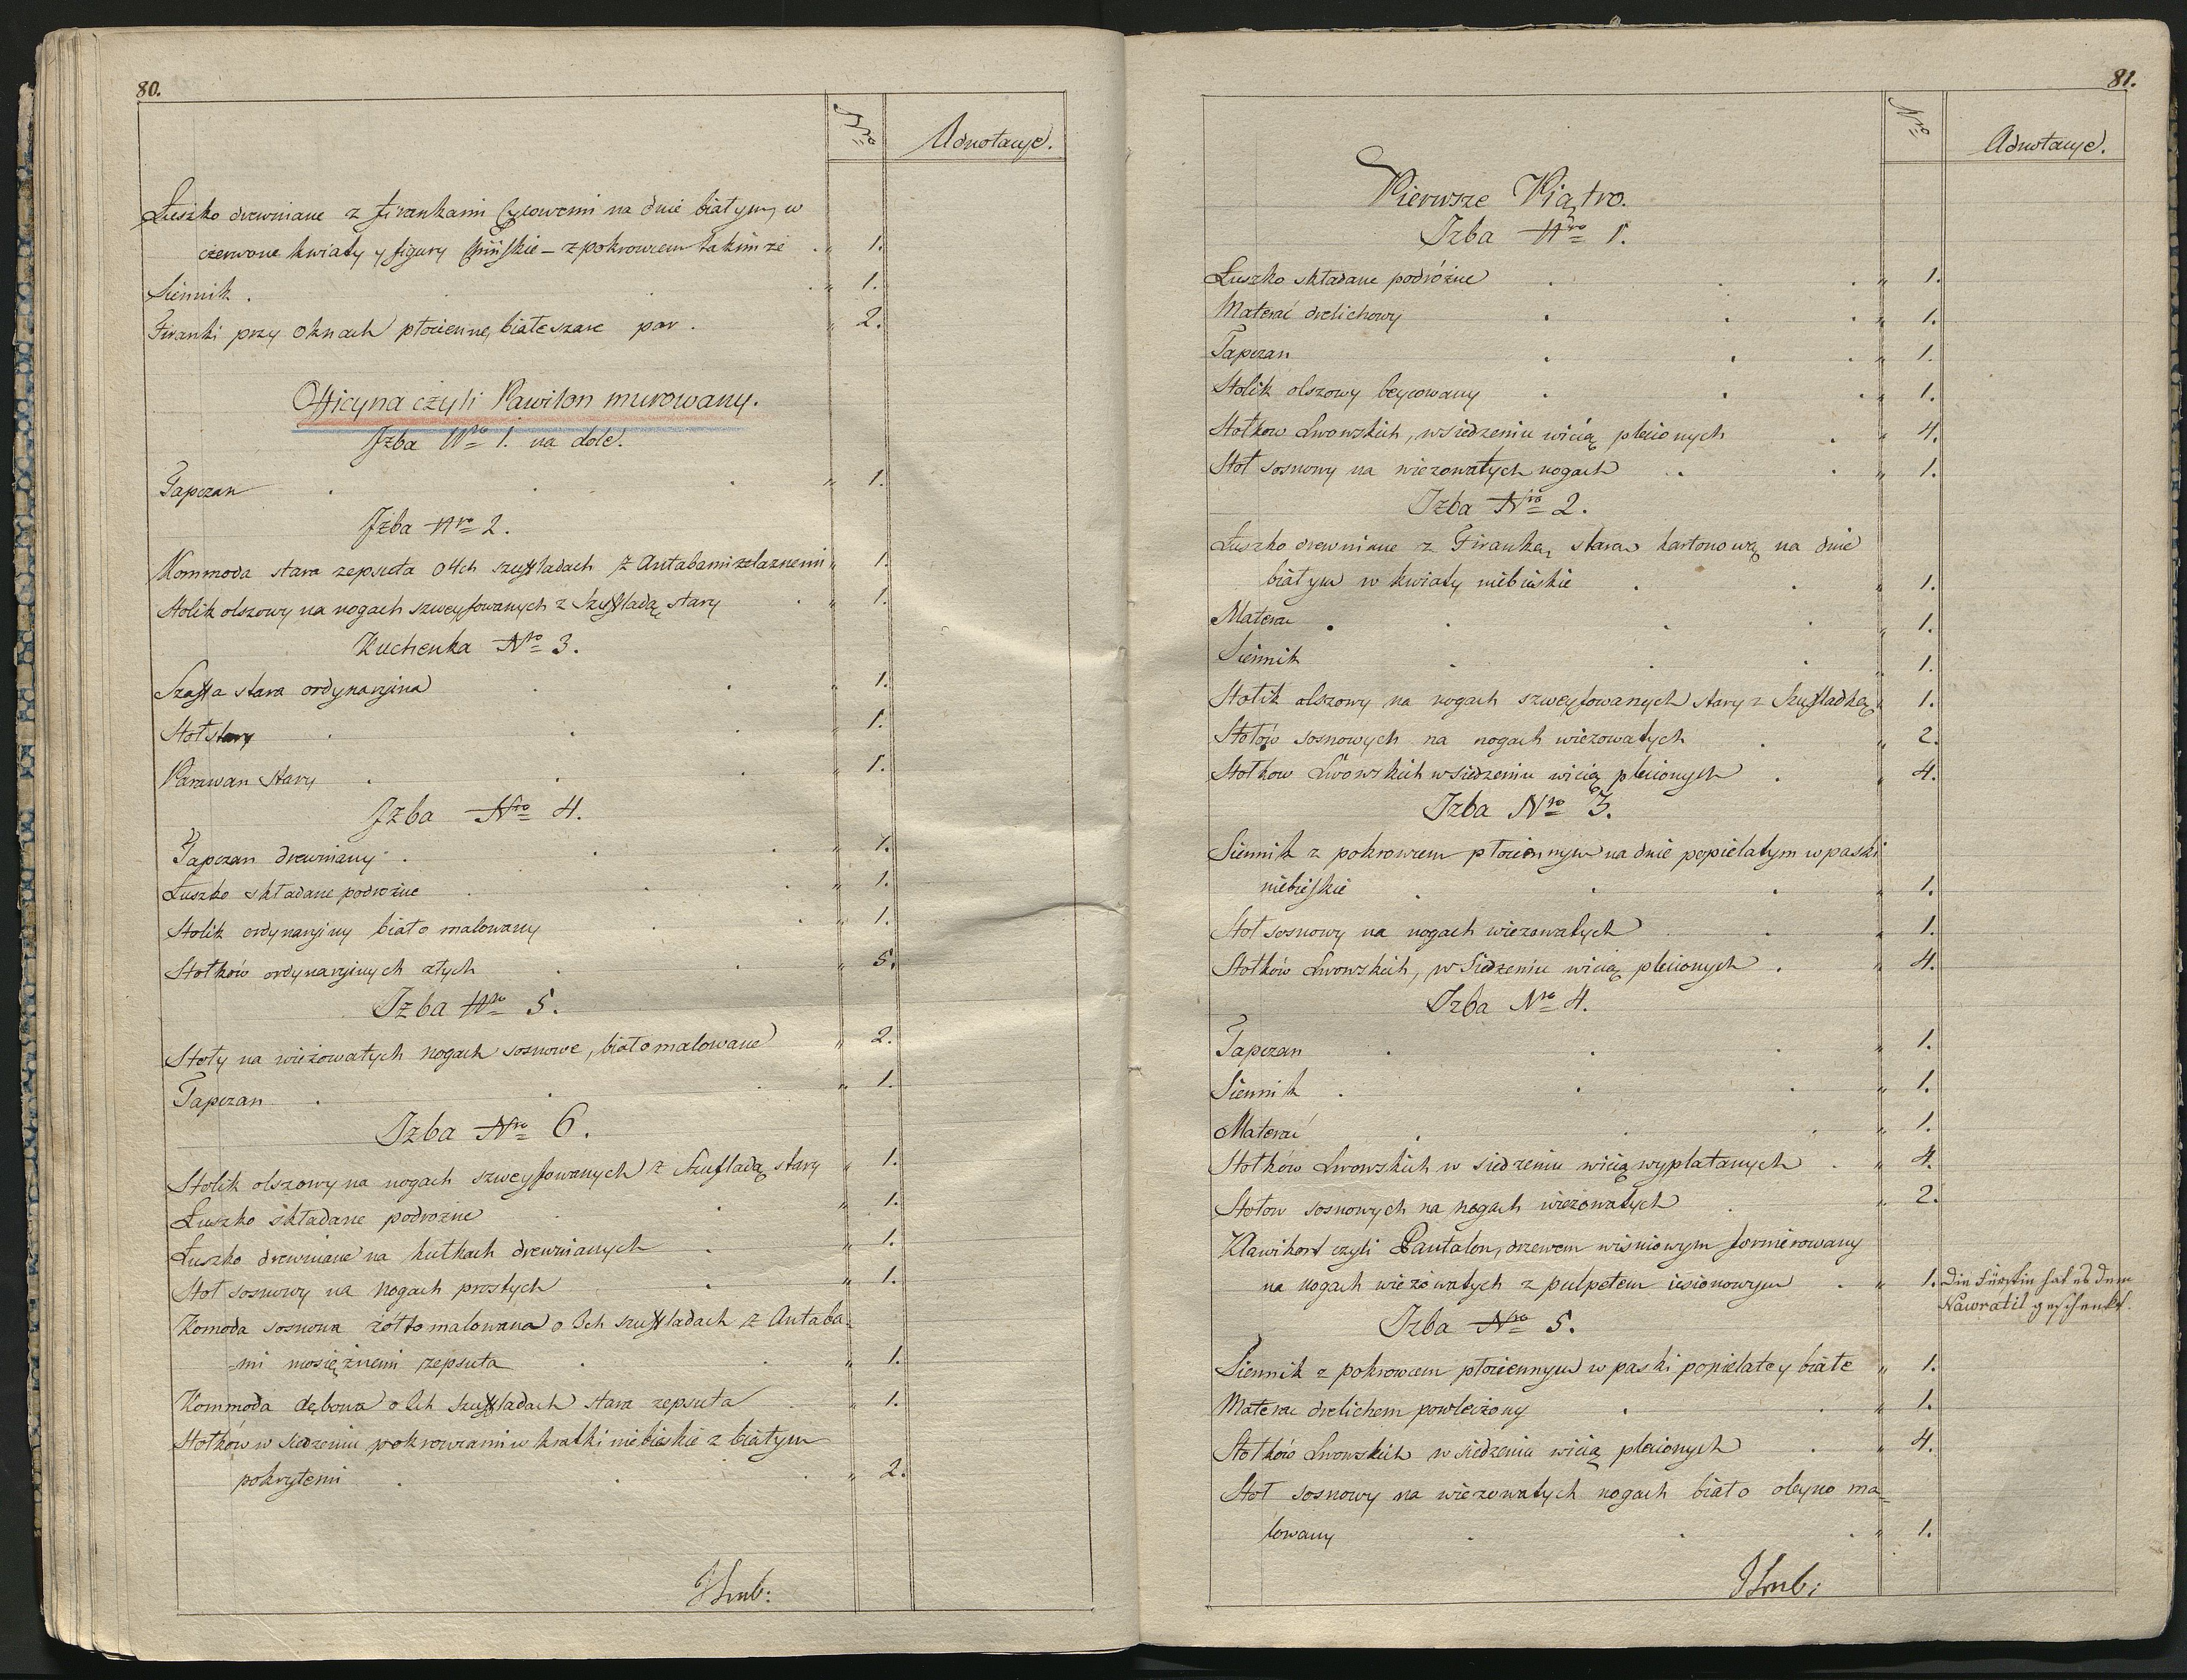 80.
Nro
Adnotacye.
Łuszko drewniane z firankami Cycowemi na dnie białym, w
czerwone kwiaty y figury Chińskie – z pokrowcem takimże . „ 1.
Siennik . . . „ 1.
Firanki przy oknach płócienne, białe szare par . „ 2.
Officyna czyli Pawilon murowany.
Jzba Nro 1. na dole.
Tapczan . . . „ 1.
Jzba Nro 2.
Kommoda stara zepsuta o 4ch szufladach z Antabami żelaznemi „ 1.
Stolik olszowy na nogach szweyfowanych z Szufladą stary . „ 1.
Kuchenka Nro 3.
Szaffa stara ordynaryina . . „ 1.
Stoł stary . . . „ 1.
Parawan stary . . . „ 1.
Jzba Nro 4.
Tapczan drewniany . . . „ 1.
Łuszko składane podrożne . . . „ 1.
Stolik ordynaryiny biało malowany . . „ 1.
Stołków ordynaryinych złych . . „ 5.
Jzba Nro 5.
Stoły na wieżowatych nogach sosnowe, biało malowane „ 2.
Tapczan . . . „ 1.
Jzba Nro 6.
Stolik olszowy na nogach szweyfowanych z Szufladą stary „ 1.
Łuszko składane podrożne . . „ 1.
Łuszko drewniane na kulkach drewnianych . „ 1.
Stoł sosnowy na nogach prostych . „ 1.
Komoda sosnowa żółto malowana o 3ch szufladach z Antaba-
-mi mosiężnemi zepsuta . . „ 1.
Kommoda dębowa o 2ch szufladach stara zepsuta . „ 1.
Stołków w siedzeniu pokrowcami w kratki niebieskie z białym
pokrytemi . . . „ 2.
81.
Nro
Adnotacye.
Pierwsze Piątro.
Jzba Nro 1.
Łuszko składane podróżne . . . „ 1.
Materac drelichowy . . . „ 1.
Tapczan . . . „ 1.
Stolik olszowy beycowany . . . „ 1.
Stołkow Lwowskich, w siedzeniu wicią plecionych . „ 4.
Stoł sosnowy na wiezowatych nogach . . „ 1.
Jzba Nro 2.
Łuszko drewniane z Firanką starą kartonową na dnie
białym w kwiaty niebieskie . . „ 1.
Materac . . . . „ 1.
Siennik . . . „ 1.
Stolik olszowy na nogach szweyfowanych stary z Szufladką „ 1.
Stołów sosnowych na nogach wieżowatych . „ 2.
Stołkow Lwowskich w siedzeniu wicią plecionych . „ 4.
Jzba Nro 3.
Siennik z pokrowcem płóciennym na dnie popielatym w paski
niebieskie . . . „ 1.
Stoł sosnowy na nogach wieżowatych . „ 1.
Stołków Lwowskich, w siedzeniu wicią plecionych . „ 4.
Jzba Nro 4.
Tapczan . . . „ 1.
Siennik . . . „ 1.
Materac . . . „ 1.
Stołków Lwowskich w siedzeniu wicią wyplatanych . „ 4.
Stołow sosnowych na nogach wieżowatych . „ 2.
Klawikort czyli Pantalon, drzewem wiśniowym fornierowany
na nogach wieżowatych z pulpetem iesionowym . „ 1. Die Fürstin hat es dem
Nawratil geschenkt.
Jzba Nro 5.
Siennik z pokrowcem płóciennym w paski popielate y białe „ 1.
Materac drelichem powleczony . . „ 1.
Stołków Lwowskich w siedzeniu wicią plecionych . „ 4.
Stoł sosnowy na wieżowatych nogach biało oleyno ma-
lowany . . . „ 1.